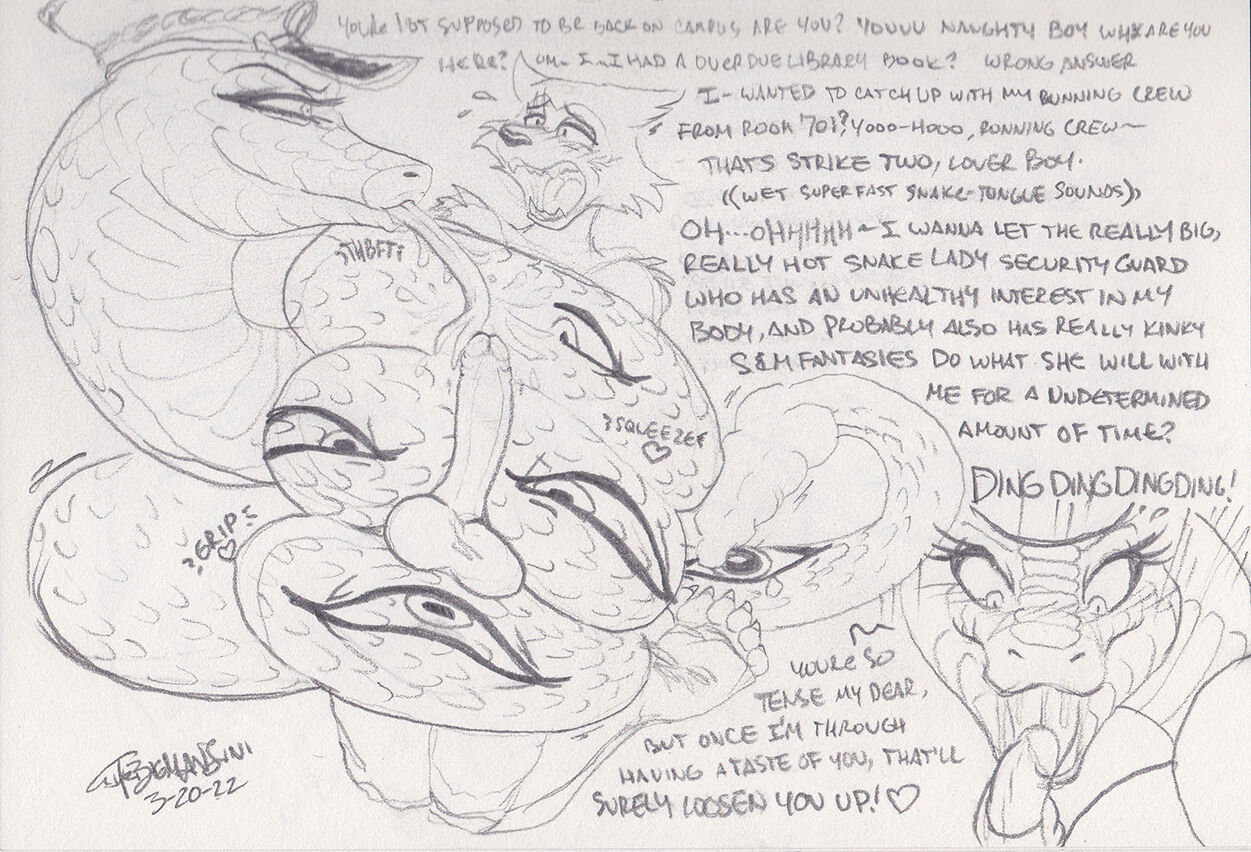 YOU'RE NOT SUPPOSED TO BE BACK ON CAMPUS ARE YOU? YOUUU NAUGHTY BOY WHY ARE YOU
HERE? UM.. I.. I HAD A OVERDUE LIBRARY BOOK? WRONG ANSWER
I- WANTED TO CATCH UP WITH MY RUNNING CREW
FROM ROOM 701? YOOO-HOOO, RUNNING CREW~
THATS STRIKE TWO, LOVER BOY.
((WET SUPERFAST SNAKE-TONGUE SOUNDS))
OH...OHHHHH~ I WANNA LET THE REALLY BIG,
REALLY HOT SNAKE LADY SECURITY GUARD
WHO HAS AN UNHEALTHY INTEREST IN MY
BODY, AND PROBABLY ALSO HAS REALLY KINKY
S&M FANTASIES DO WHAT SHE WILL WITH
ME FOR A UNDETERMINED
AMOUNT OF TIME?
DING DING DING DING!
THBFT
SQUEEZE ♡
GRIP ♡
YOURE SO
TENSE MY DEAR,
BUT ONCE I'M THROUGH
HAVING A TASTE OF YOU, THAT'LL
SURELY LOOSEN YOU UP! ♡
3-20-22